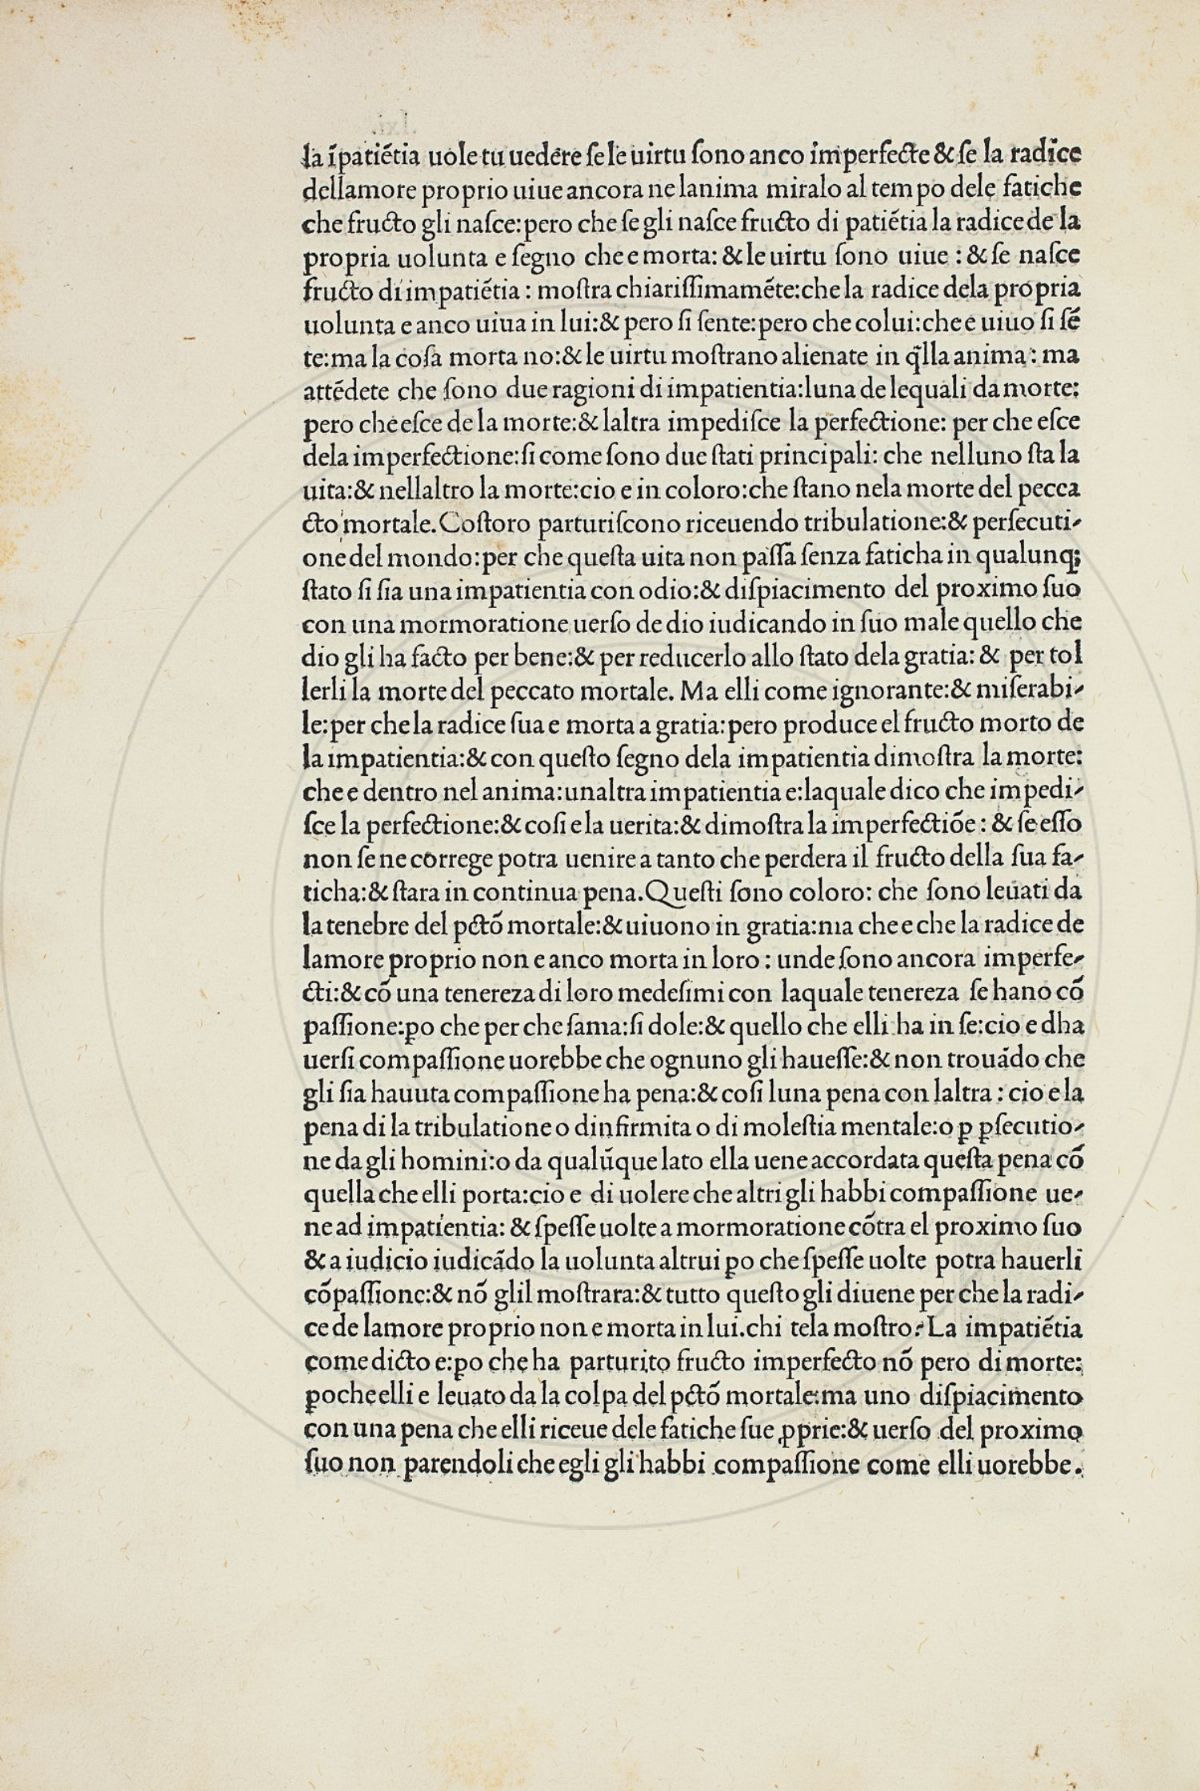 la īpatiētia uole tu uedere ſe le uirtu ſono anco imperfecte & ſe la radice
dellamore proprio uiue ancora ne lanima miralo al tempo dele fatiche
che fructo gli naſce: pero che ſe gli naſce fructo di patiētia la radice de la
propria uolunta e ſegno che e morta: & le uirtu ſono uiue : & ſe naſce
fructo di impatiētia : moſtra chiariſſimamēte: che la radice dela propria
uolunta e anco uiua in lui: & pero ſi ſente: pero che colui: che e uiuo ſi ſē
te: ma la coſa morta no: & le uirtu moſtrano alienate in q̄lla anima : ma
attēdete che ſono due ragioni di impatientia: luna de lequali da morte:
pero che eſce de la morte: & laltra impediſce la perfectione: per che eſce
dela imperfectione: ſi come ſono due ſtati principali: che nelluno ſta la
uita: & nellaltro la morte: cio e in coloro: che ſtano nela morte del pecca
cto mortale. Coſtoro parturiſcono riceuendo tribulatione: & perſecuti-
one del mondo: per che queſta uita non paſſa ſenza faticha in qualunq;
ſtato ſi ſia una impatientia con odio: & diſpiacimento del proximo ſuo
con una mormoratione uerſo de dio iudicando in ſuo male quello che
dio gli ha facto per bene: & per reducerlo allo ſtato dela gratia: & per tol
lerli la morte del peccato mortale. Ma elli come ignorante: & miſerabi-
le: per che la radice ſua e morta a gratia: pero produce el fructo morto de
la impatientia: & con queſto ſegno dela impatientia dimoſtra la morte:
che e dentro nel anima: unaltra impatientia e: laquale dico che impedi-
ſce la perfectione: & coſi e la uerita: & dimoſtra la imperfectiōe : & ſe eſſo
non ſe ne correge potra uenire a tanto che perdera il fructo della ſua fa-
ticha: & ſtara in continua pena. Queſti ſono coloro: che ſono leuati da
la tenebre del pctō mortale: & uiuono in gratia: ma che e che la radice de
lamore proprio non e anco morta in loro : unde ſono ancora imperfe-
cti: & cō una tenereza di loro medeſimi con laquale tenereza ſe hano cō
paſſione: ꝑo che per che ſama: ſi dole: & quello che elli ha in ſe: cio e dha
uerſi compaſſione uorebbe che ognuno gli haueſſe: & non trouādo che
gli ſia hauuta compaſſione ha pena: & coſi luna pena con laltra : cio e la
pena di la tribulatione o dinfirmita o di moleſtia mentale: o ꝑ ꝑſecutio-
ne da gli homini: o da qualūque lato ella uene accordata queſta pena cō
quella che elli porta: cio e di uolere che altri gli habbi compaſſione ue-
ne ad impatientia: & ſpeſſe uolte a mormoratione cōtra el proximo ſuo
& a iudicio iudicādo la uolunta altrui ꝑo che ſpeſſe uolte potra hauerli
cōpaſſione: & nō glil moſtrara: & tutto queſto gli diuene per che la radi-
ce de lamore proprio non e morta in lui. chi tela moſtro? La impatiētia
come dicto e: ꝑo che ha parturito fructo imperfecto nō pero di morte:
ꝑo che elli e leuato da la colpa del pctō mortale: ma uno diſpiacimento
con una pena che elli riceue dele fatiche ſue ꝓprie: & uerſo del proximo
ſuo non parendoli che egli gli habbi compaſſione come elli uorebbe.